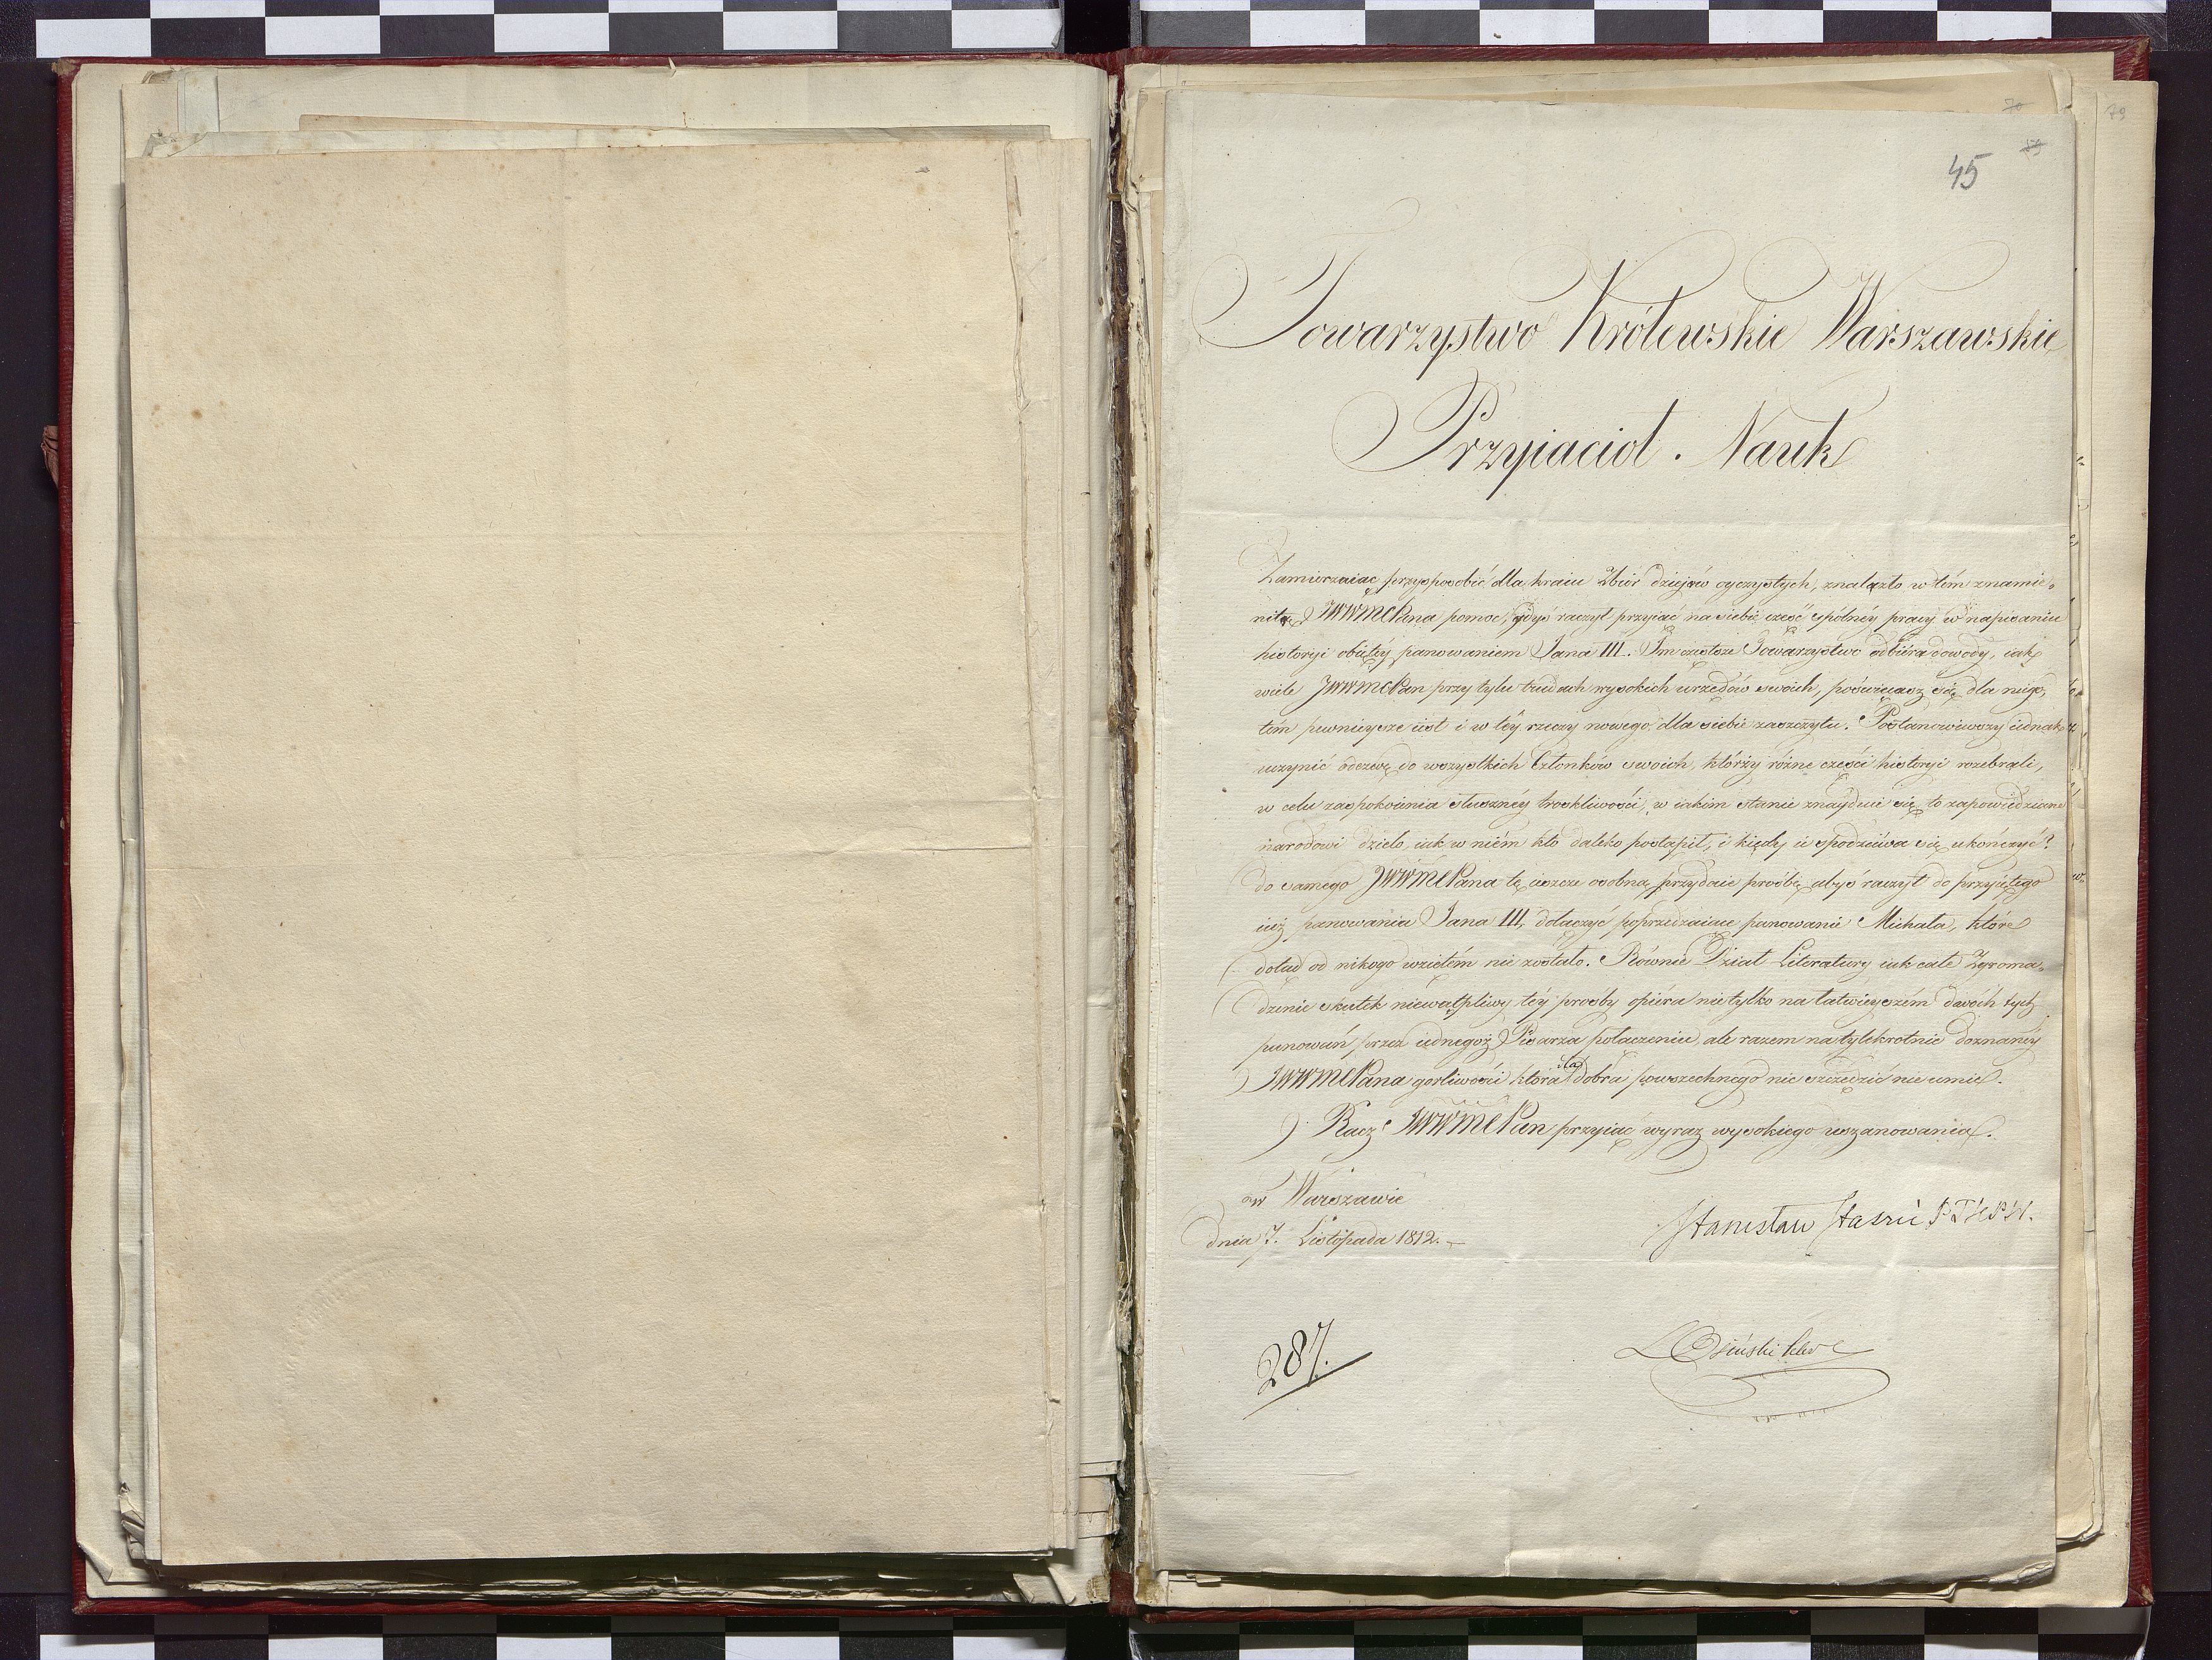 79
50
89
45
Towarzystwo Królewskie Warszawskie
Przyiaciół . Nauk
Zamierzaiąc przysposobić dla kraiu Zbiór dzieiów oyczystych, znalazło w tém znamie-
nitą JWWMCPana pomoc, gdyś raczył przyiąć na siebie część spólnéy pracy w napisaniu
historyi obiętéy panowaniem Jana III. Im częstsze Towarzystwo odbiéra dowody, iak
wiele JWWMCPan przy tylu trudach wysokich urzędów swoich, poświęcasz się dla niego,
tém pewnieysze iest i w téy rzeczy nowego dla siebie zaszczytu. Postanowiwszy iednak
uczynić odezwę do wszystkich Członków swoich, którzy różne części historyi rozebrali,
w celu zaspokoienia słusznéy troskliwości, w iakim stanie znayduie się to zapowiedziane
narodowi dzieło, iak w niém kto daleko postąpił, i kiedy ie spodziéwa się ukończyć?
do samego JWWMCPana tę ieszcze osobną przydaie prośbę, abyś raczył do przyiętego
iuż panowania Jana III, dołączyć poprzedzaiące panowanie Michała, które
dotąd od nikogo wziętém nie zostało. Równie Dział Literatury iak całe Zgroma-
dzenie skutek niewątpliwy téy prośby opiéra nie tylko na łatwieyszém dwóch tych
panowań przez iednegoż Pisarza połączeniu, ale razem na tylekrotnie doznanéy
JWWMCPana gorliwości która dla dobra powszechnego nic szczędzić nie umie.
Racz JWWMCPan przyiąć wyraz wysokiego uszanowania.
w Warszawie
dnia 7. Listopada 1812.
Stanisław Staszic PTKPW.
287.
L Osiński Sekr